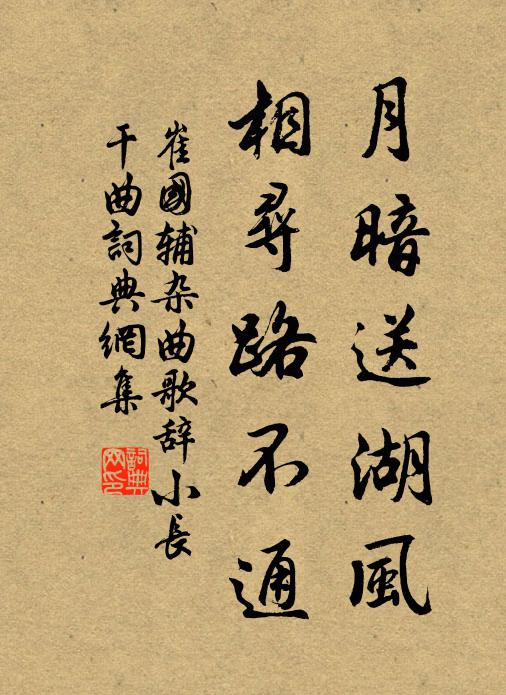 月暗送湖風
相尋路不通
崔國辅杂曲歌辞小長
干曲詞典網集
詞典
网印